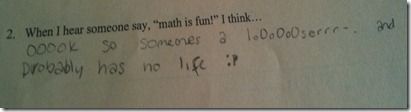 2. When I hear someone say, “math is fun!” I think...
OOOOK so someones a loOoOoOserrr-. and
probably has no life :P